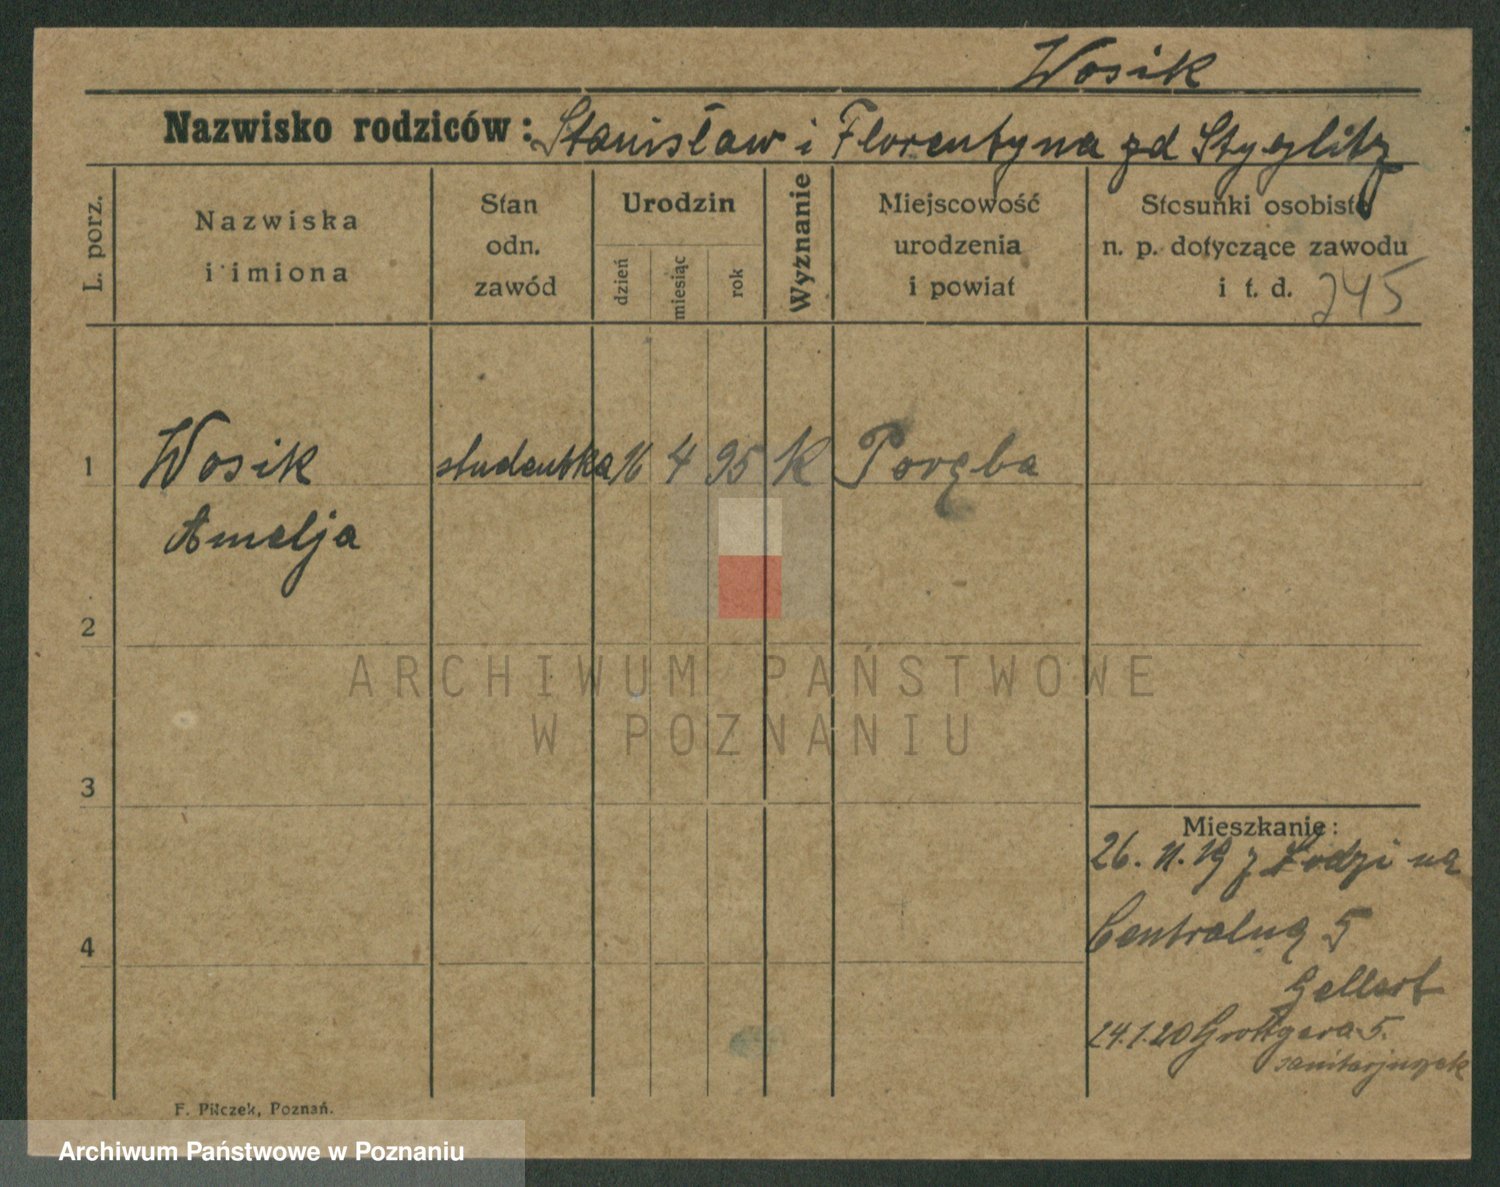 Wosik
Nazwisko rodziców: Stanisław i Florentyna zd Styglitz
L. porz.
Nazwiska
i imiona
Stan
odn.
zawód
Urodzin
dzień
miesiąc
rok
Wyznanie
Miejscowość
urodzenia
i powiat
Stosunki osobiste
n. p. dotyczące zawodu
i t. d. 245
1 Wosik studentka 16 4 95 K Poręba
Amelja
2
ARCHIWUM PAŃSTWOWE
W POZNANIU
3
Mieszkanie:
26. 11. 19 z Łodzi na
Centralną 5
4
Gellert
24.1.20 Grottgera 5.
sanitarjuszek
F. Pilczek, Poznań.
Archiwum Państwowe w Poznaniu